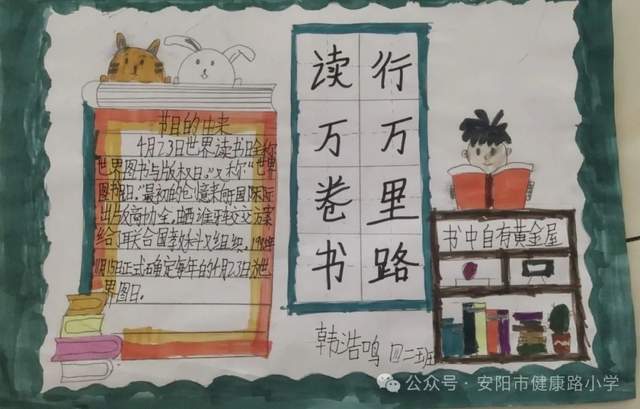 节日的由来
4月23日世界读书日全称
世界图书与版权日,"又称"世界
图书日。"最初的创意来自于国际
出版商协会,由西班牙转交方案
给了联合国教科文组织。19
11月15日正式确定每年的4月23日为世
界图日。
读万卷书
行万里路
书中自有黄金屋
韩浩鸣 四二班
公众号·安阳市健康路小学